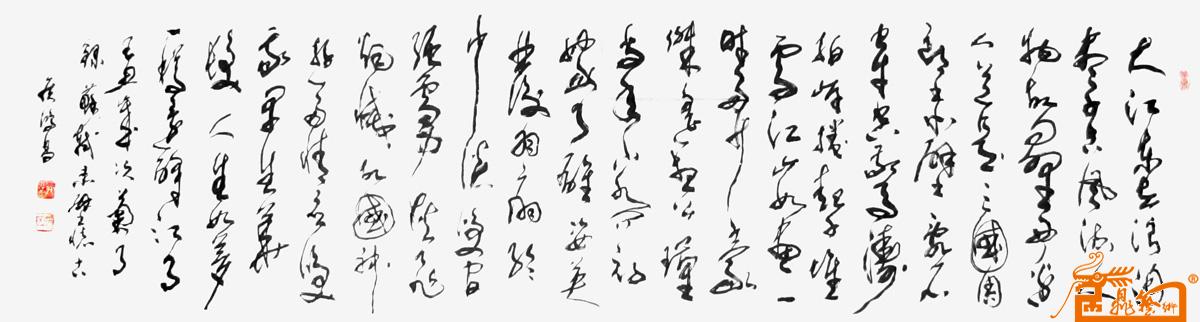 大江东去浪淘
尽千古风流人
物故垒西边
人道是三國周
郎赤壁乱石
穿空惊涛
拍岸捲起千堆
雪江山如画一
时多少豪
杰遥想公瑾
当年小乔初
嫁了雄姿英
发羽扇纶
巾谈笑间
强虏灰飞
烟灭故國神
游多情应笑
我早生华
发人生如梦
一樽还酹江月
年次菊月
録蘇軾赤壁懷古